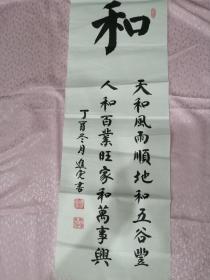 和
天和風雨順地和五谷豐
人和百業旺家和萬事興
丁酉冬月進宏書